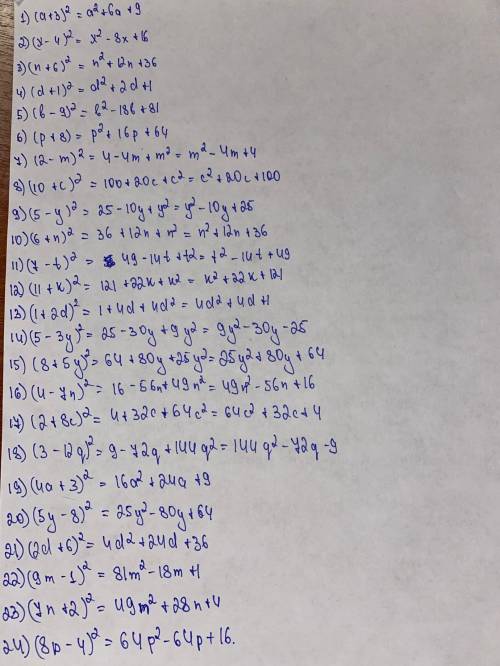 1) (a+3)² = a²+6a+9
2) (x-4)² = x²-8x+16
3) (n+6)² = n²+12n+36
4) (d+1)² = d²+2d+1
5) (b-9)² = b²-18b+81
6) (p+8) = p²+16p+64
7) (2-m)² = 4-4m+m² = m²-4m+4
8) (10+c)² = 100+20c+c² = c²+20c+100
9) (5-y)² = 25-10y+y² = y²-10y+25
10) (6+n)² = 36+12n+n² = n²+12n+36
11) (7-t)² = 49-14t+t2 = t²-14t+49
12) (11+x)² = 121+22x+x² = x²+22x+121
13) (1+2d)² = 1+4d+4d² = 4d²+4d+1
14) (5-3y)² = 25-30y+9y² = 9y²-30y-25
15) (8+5y)² = 64+80y+25y² = 25y²+80y+64
16) (4-7n)² = 16-56n+49n² = 49n²-56n+16
17) (2+8c)² = 4+32c+64c² = 64c²+32c+4
18) (3-12q)² = 9-72q+144q² = 144q²-72q-9
19) (4a+3)² = 16a²+24a+9
20) (5y-8)² = 25y²-80y+64
21) (2d+6)² = 4d²+24d+36
22) (9m-1)² = 81m²-18m+1
23) (7n+2)² = 49m²+28n+4
24) (8p-4)² = 64p²-64p+16.